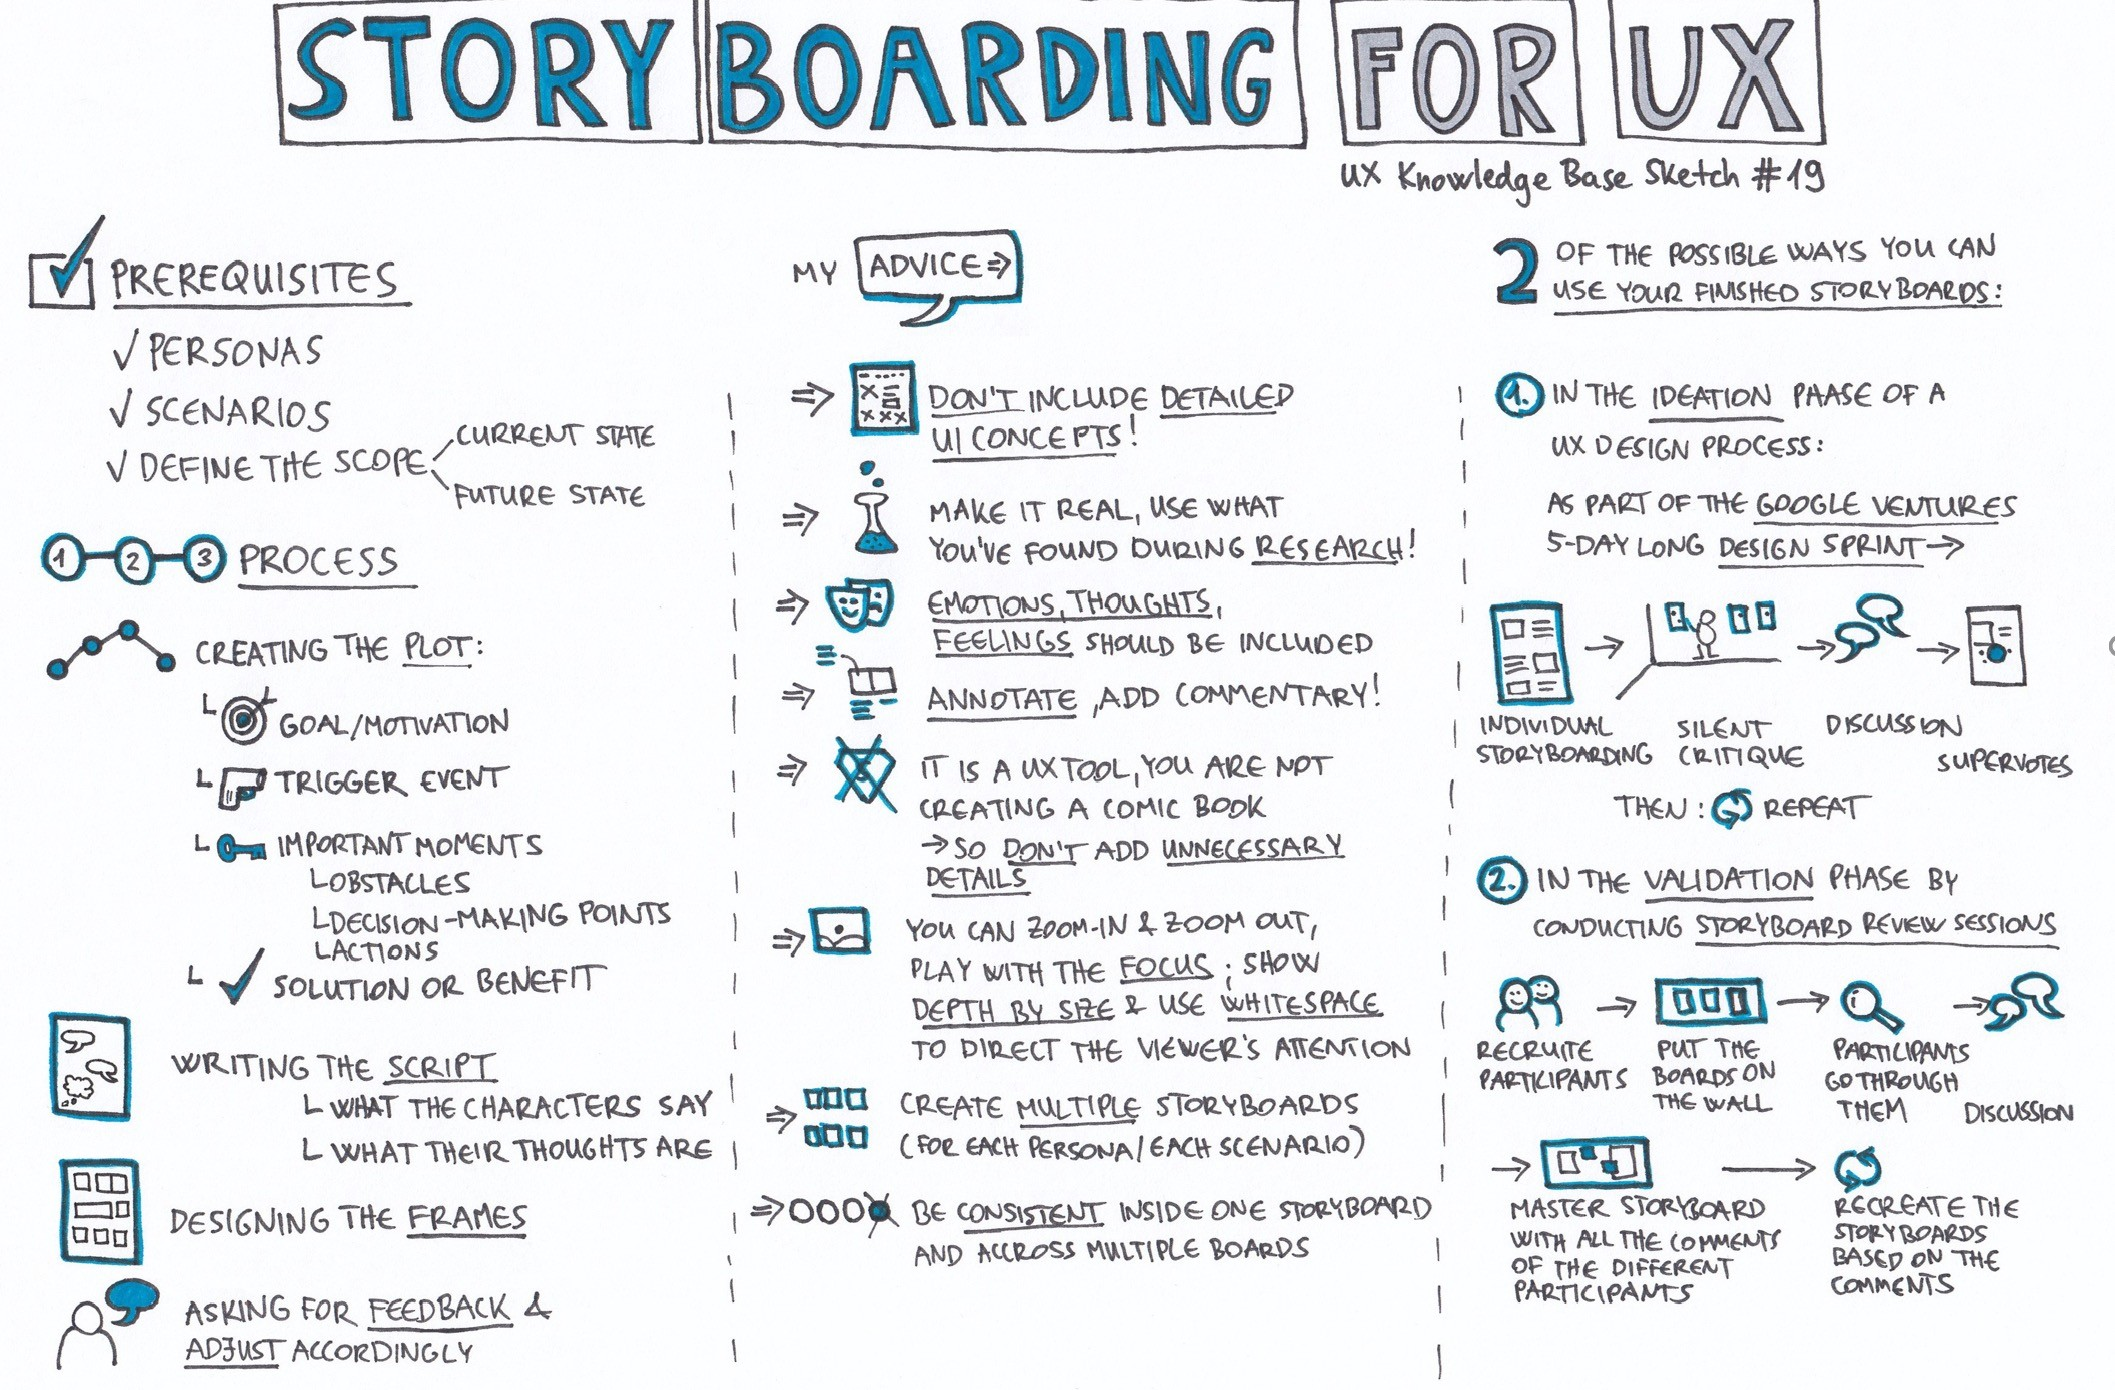 STORY BOARDING FOR UX
UX Knowledge Base Sketch #19
PREREQUISITES
√ PERSONAS
√ SCENARIOS
√ DEFINE THE SCOPE
CURRENT STATE
FUTURE STATE
1 2 3 PROCESS
CREATING THE PLOT:
GOAL/MOTIVATION
TRIGGER EVENT
IMPORTANT MOMENTS
OBSTACLES
DECISION-MAKING POINTS
ACTIONS
SOLUTION OR BENEFIT
WRITING THE SCRIPT
WHAT THE CHARACTERS SAY
WHAT THEIR THOUGHTS ARE
DESIGNING THE FRAMES
ASKING FOR FEEDBACK &
ADJUST ACCORDINGLY
MY ADVICE ⇒
⇒ DON'T INCLUDE DETAILED
UI CONCEPTS!
⇒ MAKE IT REAL, USE WHAT
YOU'VE FOUND DURING RESEARCH!
⇒ EMOTIONS, THOUGHTS,
FEELINGS SHOULD BE INCLUDED
⇒ ANNOTATE, ADD COMMENTARY!
⇒ IT IS A UX TOOL, YOU ARE NOT
CREATING A COMIC BOOK
→ SO DON'T ADD UNNECESSARY
DETAILS
⇒ YOU CAN ZOOM-IN & ZOOM OUT,
PLAY WITH THE FOCUS; SHOW
DEPTH BY SIZE & USE WHITESPACE
TO DIRECT THE VIEWER'S ATTENTION
⇒ CREATE MULTIPLE STORYBOARDS
(FOR EACH PERSONA/EACH SCENARIO)
⇒ BE CONSISTENT INSIDE ONE STORYBOARD
AND ACCROSS MULTIPLE BOARDS
2 OF THE POSSIBLE WAYS YOU CAN
USE YOUR FINISHED STORYBOARDS:
1. IN THE IDEATION PHASE OF A
UX DESIGN PROCESS:
AS PART OF THE GOOGLE VENTURES
5-DAY LONG DESIGN SPRINT →
INDIVIDUAL
STORYBOARDING
SILENT
CRITIQUE
DISCUSSION
SUPERVOTES
THEN: REPEAT
2. IN THE VALIDATION PHASE BY
CONDUCTING STORYBOARD REVIEW SESSIONS
RECRUITE
PARTICIPANTS
PUT THE
BOARDS ON
THE WALL
PARTICIPANTS
GO THROUGH
THEM
DISCUSSION
MASTER STORYBOARD
WITH ALL THE COMMENTS
OF THE DIFFERENT
PARTICIPANTS
RECREATE THE
STORYBOARDS
BASED ON THE
COMMENTS